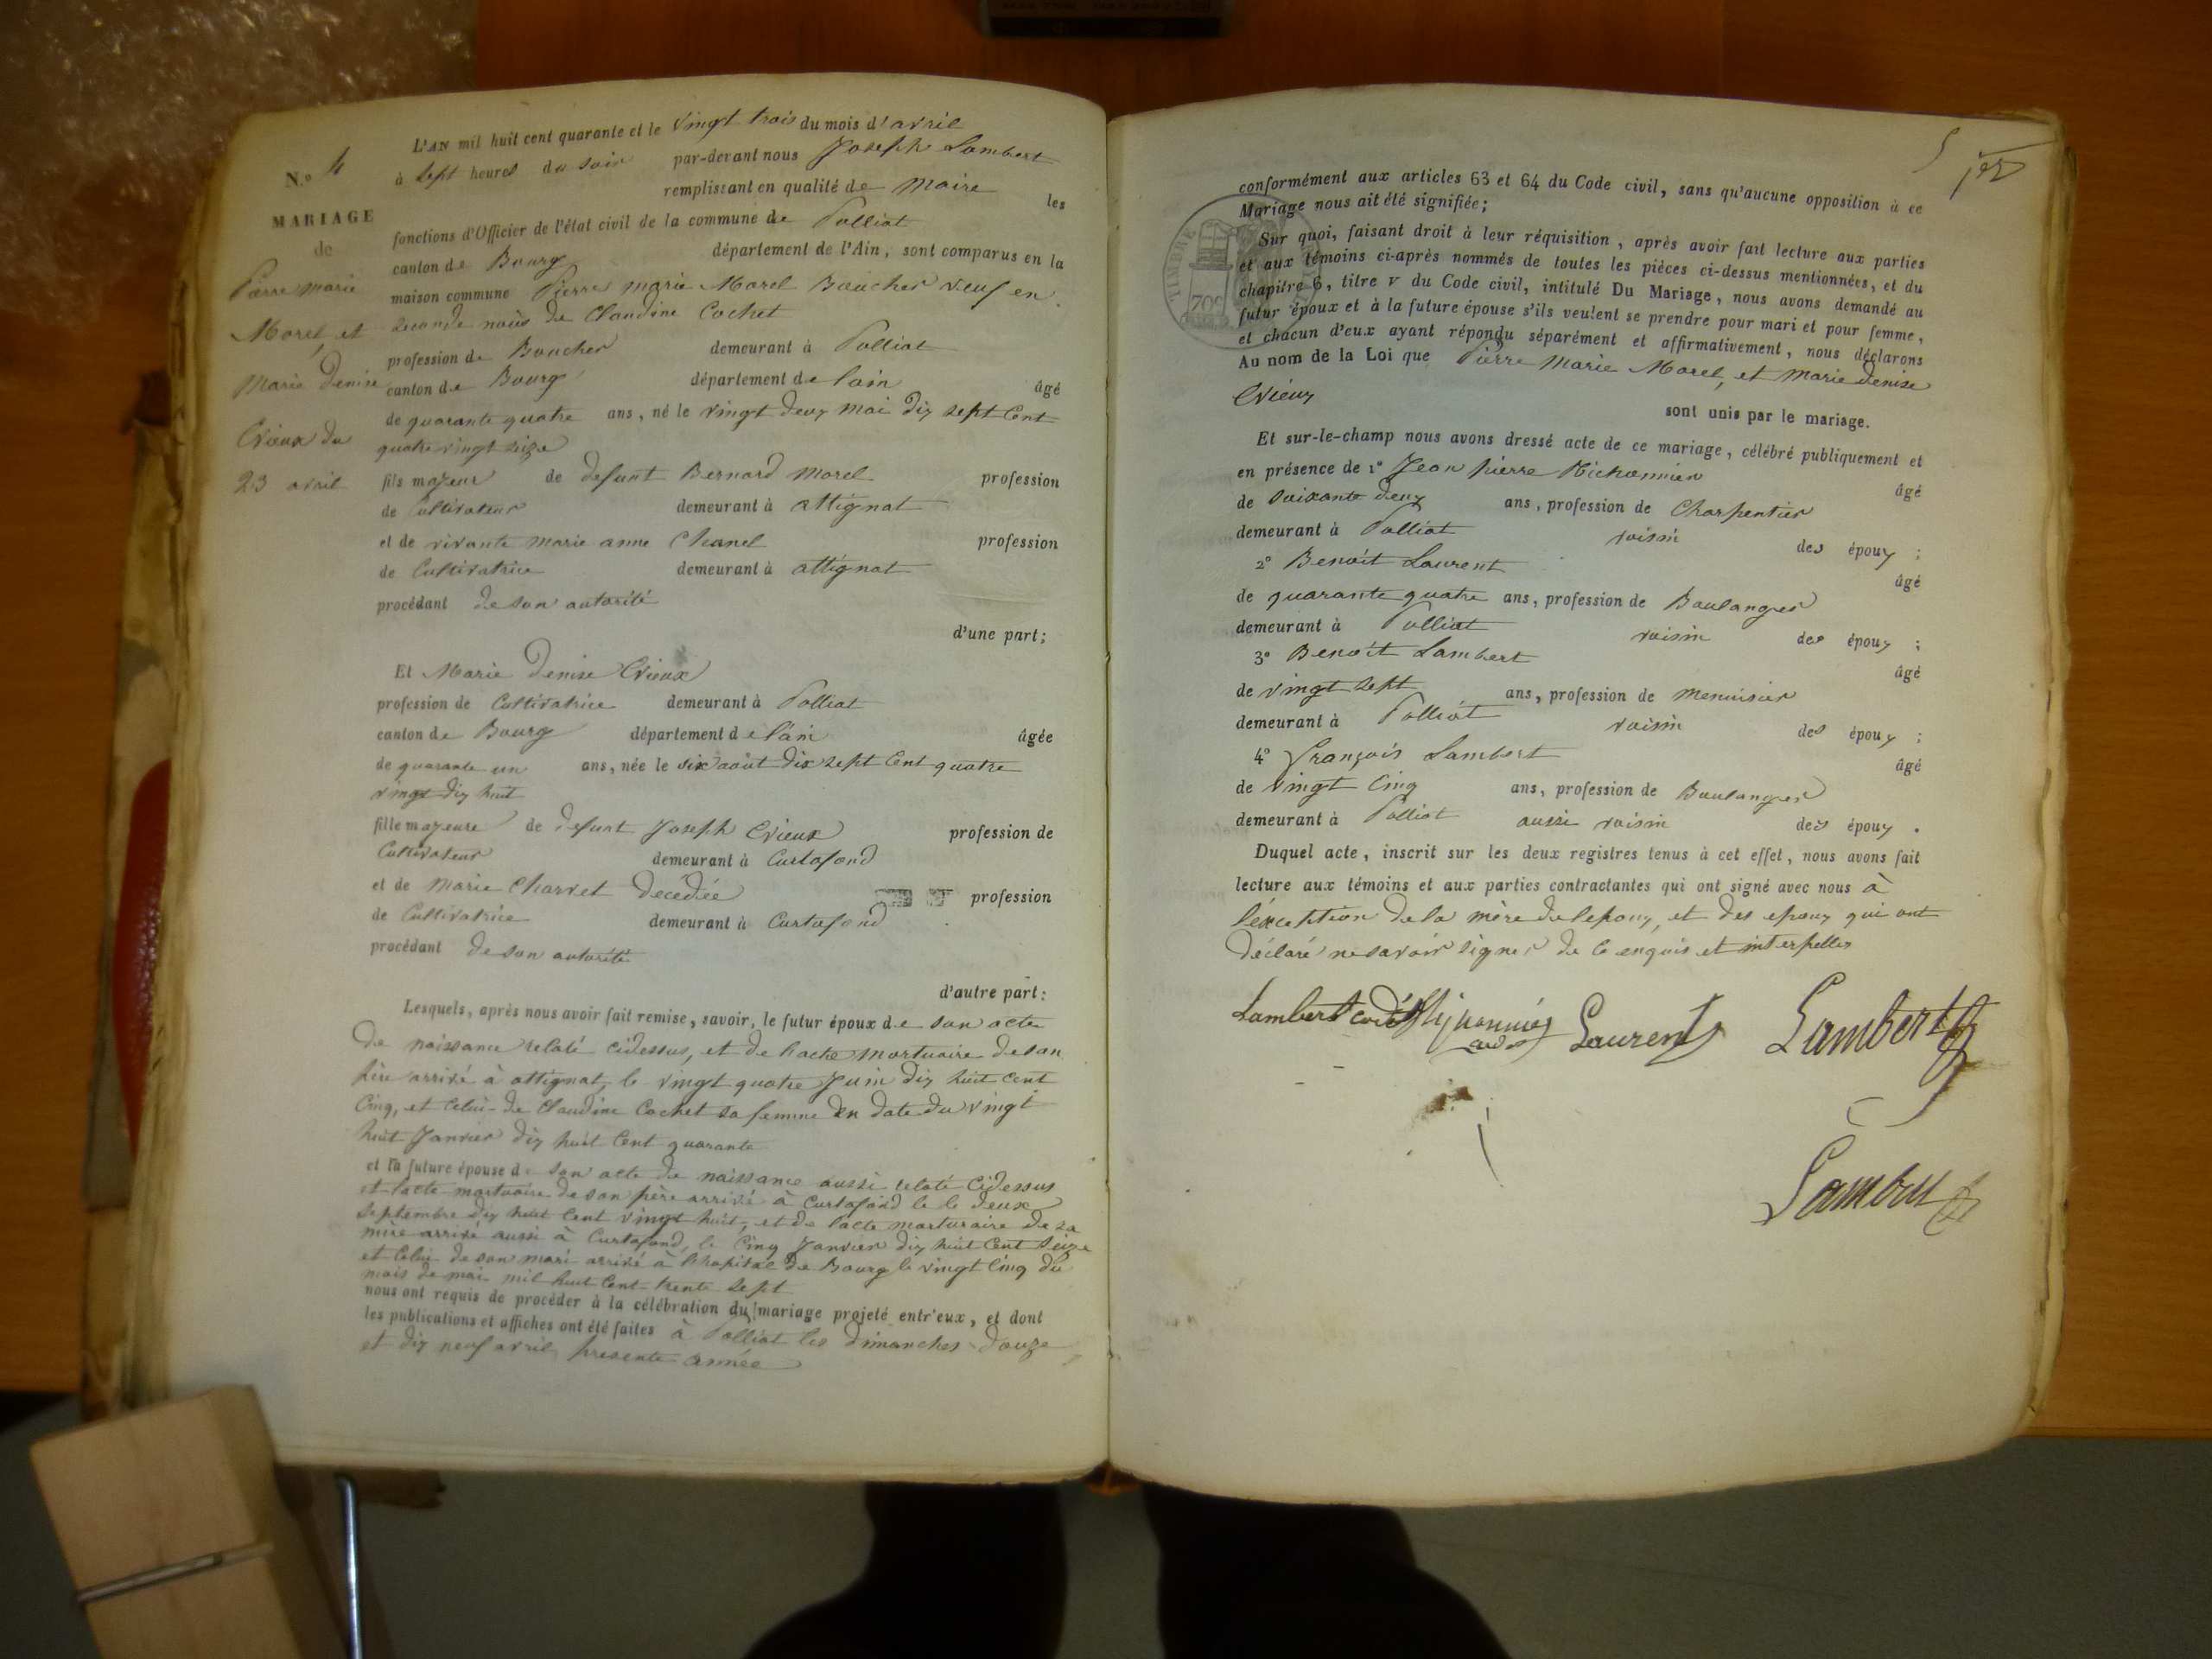 N.o 4
MARIAGE
de
Pierre marie
Morel, et
Marie denise
Crieux du
23 avril
L'AN mil huit cent quarante et le vingt trois du mois d'avril
à sept heures du soir par-devant nous Joseph Lambert
remplissant en qualité de Maire les
fonctions d'Officier de l'état civil de la commune de Polliat
canton de Bourg département de l'Ain, sont comparus en la
maison commune Pierre marie Morel Boucher veuf en
seconde noùs de Claudine Cochet
profession de Boucher demeurant à Polliat
canton de Bourg département de lain âgé
de quarante quatre ans, né le vingt deux mai dix sept Cent
quatre vingt seize
fils majeur de defunt Bernard Morel profession
de Cultivateur demeurant à attignat
et de vivante marie anne Chanel profession
de Cultivatrice demeurant à attignat
procédant de son autorité
d'une part;
Et Marie denise Crieux
profession de Cultivatrice demeurant à Polliat
canton de Bourg département de l'ain âgée
de quarante un ans, née le six août dix sept Cent quatre
vingt dix huit
fille majeure de defunt Joseph Crieux profession de
Cultivateur demeurant à Curtafond
et de Marie Charvet decédée profession
de Cultivatrice demeurant à Curtafond
procédant de son autorité
d'autre part:
Lesquels, après nous avoir fait remise, savoir, le futur époux de son acte
de naissance relaté cidessus, et de l'acte mortuaire de son
père arrivé à attignat, le vingt quatre Juin dix huit cent
Cinq, et Celui de Claudine Cochet sa femme en date du vingt
huit Janvier dix huit Cent quarante
et la future épouse de son acte de naissance aussi relaté Cidessus
et l'acte mortuaire de son père arrivé à Curtafond le le deux
septembre dix huit Cent vingt huit, et de l'acte mortuaire de sa
mère arrivé aussi à Curtafond, le Cinq Janvier dix huit Cent seize
et Celui de son mari arrivé à l'hopital de Bourg le vingt Cinq du
mois de mai mil huit Cent trente sept
nous ont requis de procéder à la célébration du mariage projeté entr'eux, et dont
les publications et affiches ont été faites à Polliat les dimanches douze
et dix neuf avril presente année
5
conformément aux articles 63 et 64 du Code civil, sans qu'aucune opposition à ce
Mariage nous ait été signifiée;
TIMBRE
70c
Sur quoi, faisant droit à leur réquisition, après avoir fait lecture aux parties
et aux témoins ci-après nommés de toutes les pièces ci-dessus mentionnées, et du
chapitre 6, titre v du Code civil, intitulé Du Mariage, nous avons demandé au
futur époux et à la future épouse s'ils veulent se prendre pour mari et pour femme,
et chacun d'eux ayant répondu séparément et affirmativement, nous déclarons
Au nom de la Loi que Pierre Marie Morel, et Marie denise
Crieux
sont unis par le mariage.
Et sur-le-champ nous avons dressé acte de ce mariage, célébré publiquement et
en présence de 1° Jean pierre âgé
de soixante deux ans, profession de Charpentier
demeurant à Polliat voisin des époux ;
2° Benoit Laurent âgé
de quarante quatre ans, profession de Boulanger
demeurant à Polliat voisin des époux ;
3° Benoit Lambert âgé
de vingt sept ans, profession de menuisier
demeurant à Polliat voisin des époux ;
4° François Lambert âgé
de vingt Cinq ans, profession de Boulanger
demeurant à Polliat aussi voisin des époux .
Duquel acte, inscrit sur les deux registres tenus à cet effet, nous avons fait
lecture aux témoins et aux parties contractantes qui ont signé avec nous à
l'exception de la mère de lepoux, et des epoux qui ont
déclaré ne savoir signer de Ce enquis et interpellés
Lambert cadet Laurent Lambert
Lambert